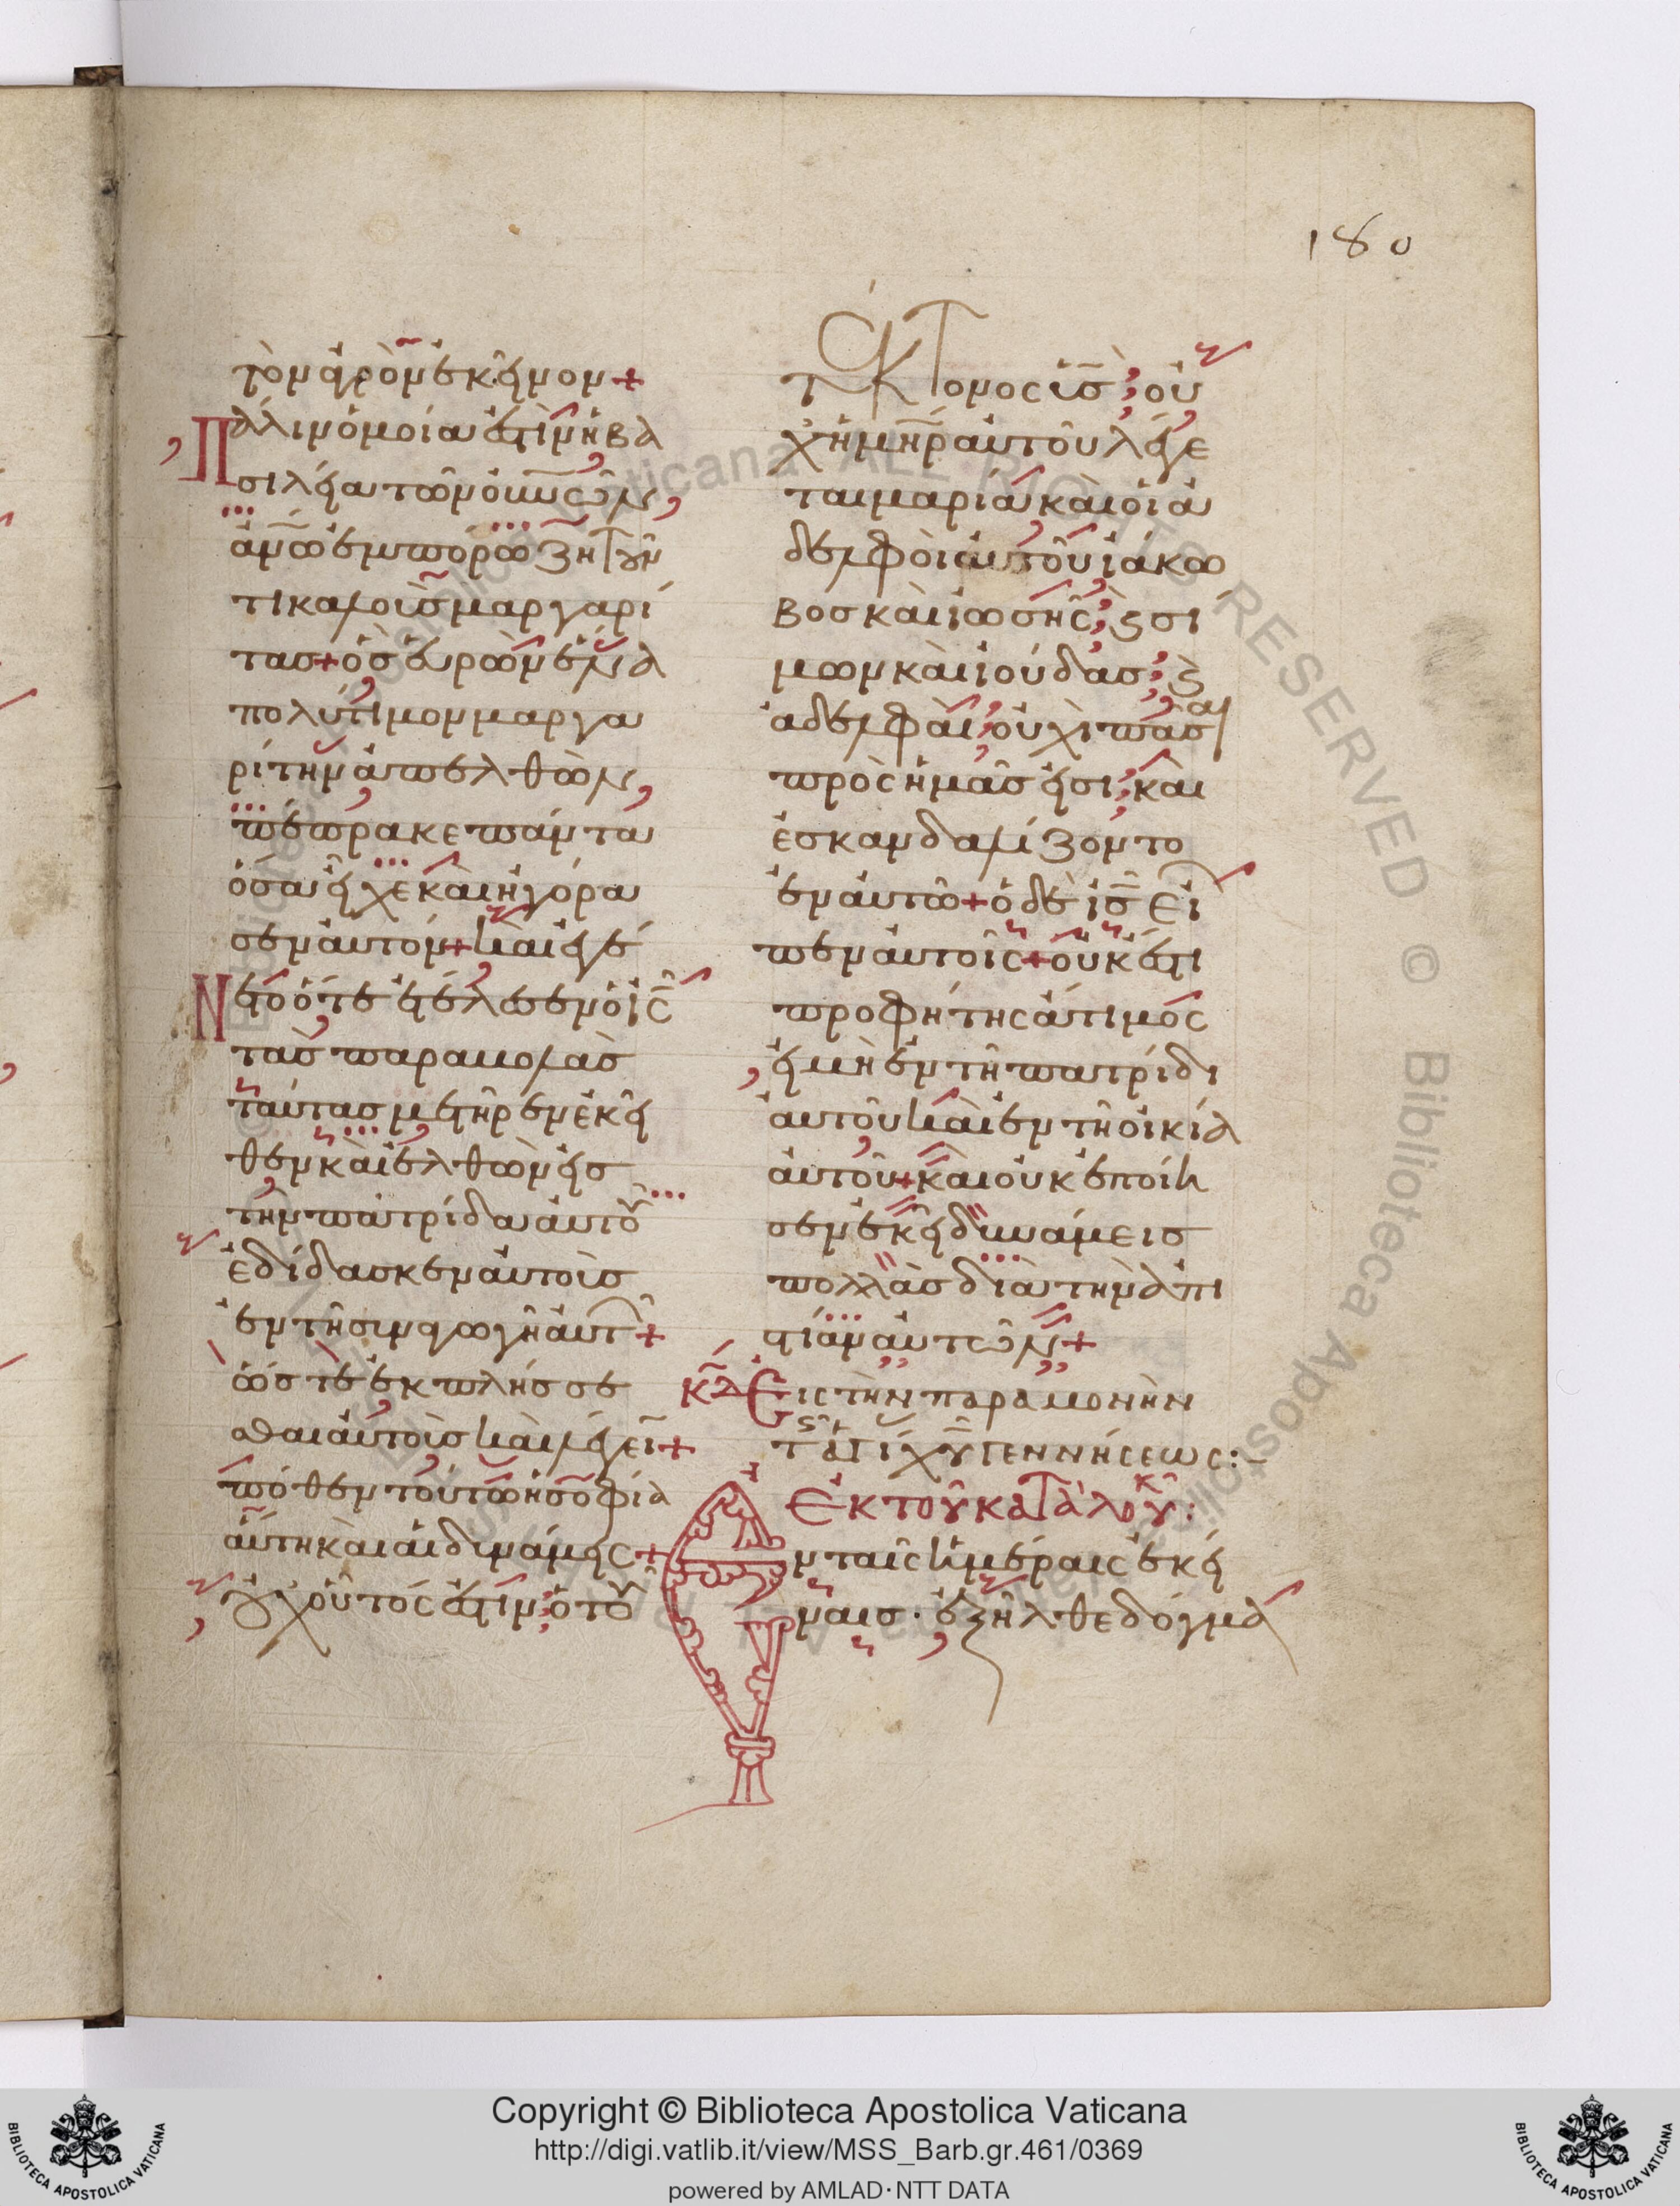 180
τὸν ἀγρὸν ἐκεῖνον+
Πάλιν ὁμοία ἐστὶν ἡ βα
σιλεία τῶν οὐνῶν,
ἀνω ἐμπόρω ζητοῦν
τι καλοὺς μαργαρί
τας+ ὃς εὑρὼν ἕνα
πολύτιμον μαργα
ρίτην ἀπελθὼν,
πέπρακε πάντα
ὅσα εἶχε καὶ ἠγόρα
σεν αὐτόν+ καὶ ἐγέ
Νετο ὅτε ἐτέλεσεν ὁ ις
τὰς παραβολὰς
ταύτας μετῆρεν ἐκεῖ
θεν καὶ ἐλθὼν εἰς
τὴν πατρίδα αὐτοῦ
ἐδίδασκεν αὐτοὺς
ἐν τῇ συναγωγῇ αὐτ+
ὥστε ἐκπλήσσε
σθαι αὐτοὺς καὶ λέγει+
πόθεν τούτω ἡ σοφία
αὕτη καὶ αἱ δυνάμεις+
οὐχ οὗτός ἐστιν ὁ τοῦ
τέκτονος υἱς; οὐ
χὴ μηρ αὐτοῦ λέγε
ται μαρία καὶ οἱ ἀ
δελφοὶ αὐτοῦ ἰάκω
βος καὶ ἰωσῆς; ϗ σί
μων καὶ ἰούδας; ϗ
ἀδελφαὶ οὐχὶ πᾶσαι
πρὸς ἡμᾶς εἰσι; καὶ
ἐσκανδαλίζοντο
ἐν αὐτῶ+ ὁ δὲ ις εἶ
πεν αὐτοῖς+ οὐκ ἔστι
προφήτης ἄτιμος
εἰ μὴ ἐν τῇ πατρίδι
αὐτοῦ καὶ ἐν τῇ οἰκία
αὐτοῦ+ καὶ οὐκ ἐποίη
σεν ἐκεῖ δυνάμεις
πολλὰς διὰ τὴν ἀπι
στίαν αὐτῶν+
Εἰς τὴν παραμονὴν
τῆς χυ γεννήσεως:
Ἐκ τοῦ κατὰ λουκ:
Ἐν ταῖς ἡμέραις ἐκεί
ναις· ἐξῆλθε δόγμα
Copyright © Biblioteca Apostolica Vaticana
http://digi.vatlib.it/view/MSS_Barb.gr.461/0369
powered by AMLAD·NTT DATA